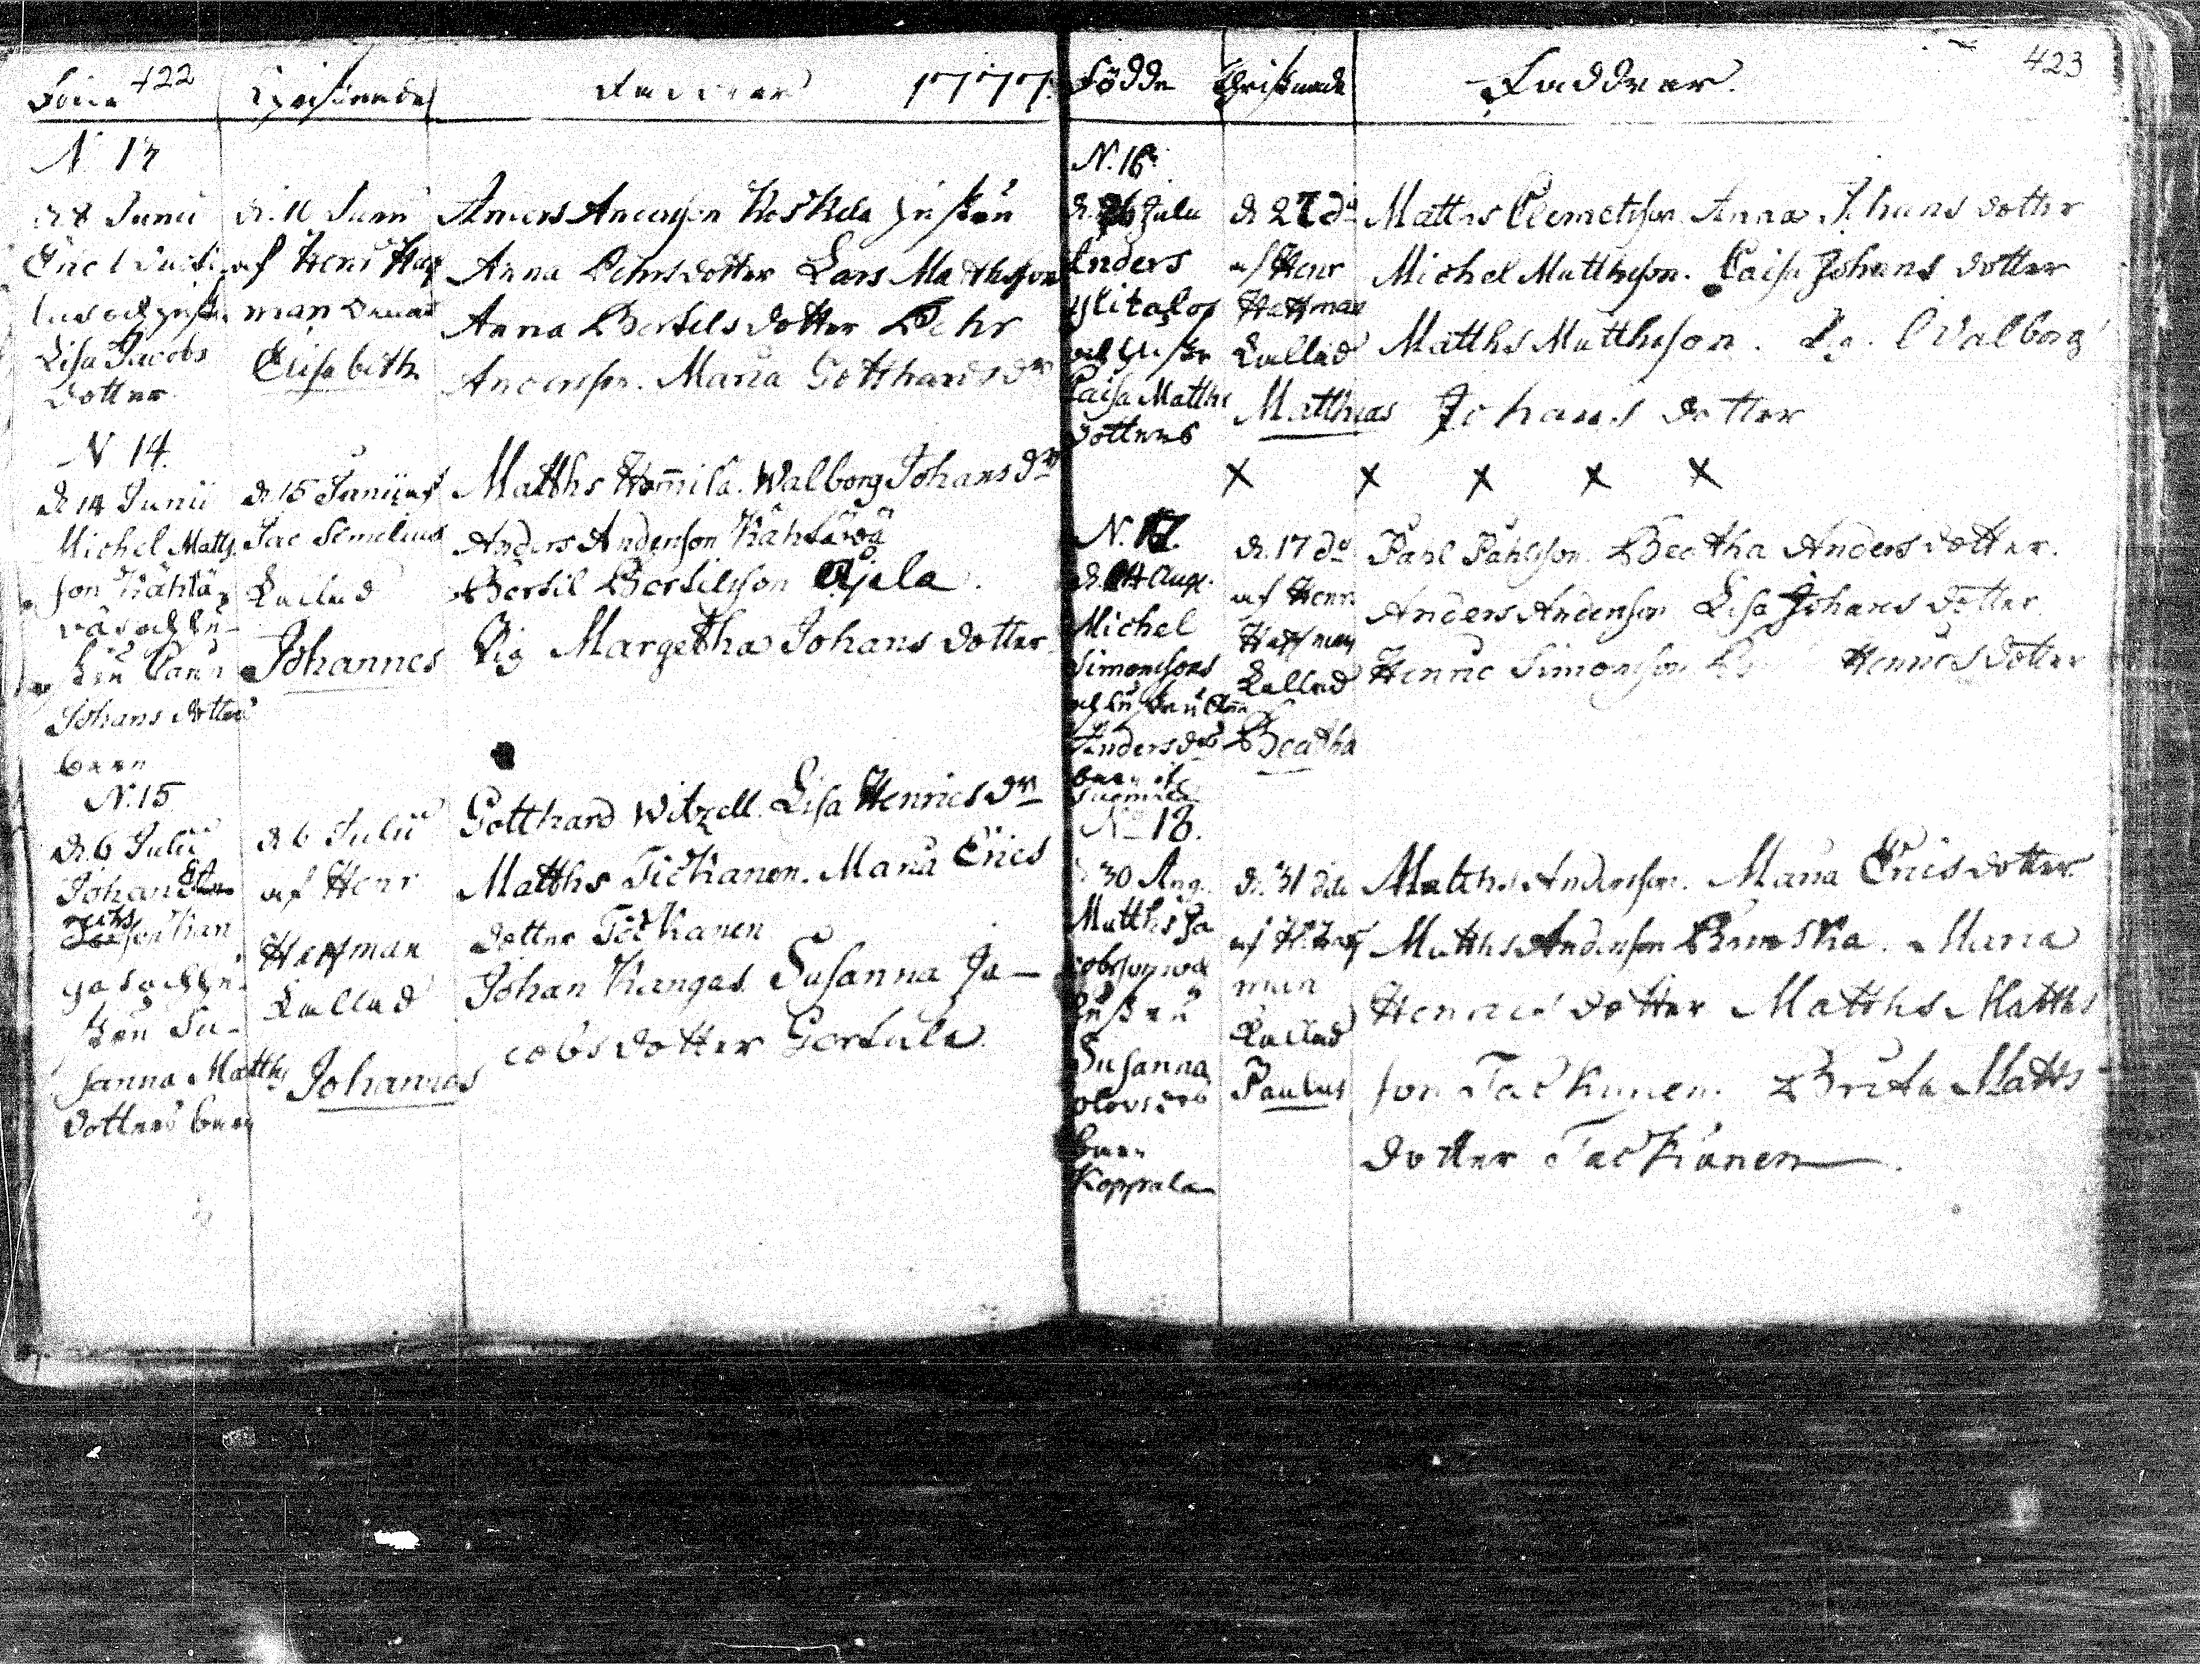 422
Födde Christnade Faddrar 1777.
N. 13
d. 8 Junii
Lisa Jacobs
dotter
d. 10 Junii
af Henr Haff
man
Elisabeth
Anders Andersson Koskela hustru
Anna Pehrsdotter Lars Matthsson
Anna Bertilsdotter Pehr
Andersson. Maria Gotthards dr
N 14.
d. 14 Junii
Michel Matts
son Kähtä
vås och hu-
stru
Johans dotters
barn
d. 15 Junii af
Jac Simelius
kallad
Johannes
Matths Hannila. Walborg Johans dr
Anders Andersson Kähtävä
Bertil Bertilsson
Pig Margetha Johans dotter
N. 15
d. 6 Julii
Johan
son Kan
gas och hu
stru Su-
sanna Matths
dotters barn
d. 6 Julii
af Henr
Haffman
kallad
Johannes
Gotthard Witzell. Lisa Henrics dr
Matths Tickanen. Maria Erics
dotter Tickanen
Johan Kangas. Susanna Ja-
cobs dotter Gortula.
423
Födde Christnade Faddrar.
N. 16
d. 26 Julii
Anders
Ylitalos
och hustr
Caisa Matths
dotters
d. 27 do
af Henr
Haffman
kallad
Matthias
Matths Clemetsson. Anna Johans dotter
Michel Matthsson. Caisa Johans dotter
Matths Matthsson. Walborg
Johans dotter
x x x x x
N. 17.
d. 14 Aug.
Michel
Simonssons
och hustru
Anders drs
barn
d. 17 do
af Henr
Haffman
kallad
Beatha
Pahl Pahlsson. Beatha Anders dotter.
Anders Andersson Lisa Johans dotter
Henric Simonsson Henrics dotter
No 18.
d 30 Aug.
Matths Ja
cobsson och
hustru
Susanna
Olovs drs
barn
Koppala
d. 31 dito
af H. Haff
man
kallad
Paulus
Matths Andersson. Maria Erics dotter
Matths Andersson. Maria
Henrics dotter Matths Matths
son Tackunen. Brita Matts
dotter Tackinen.